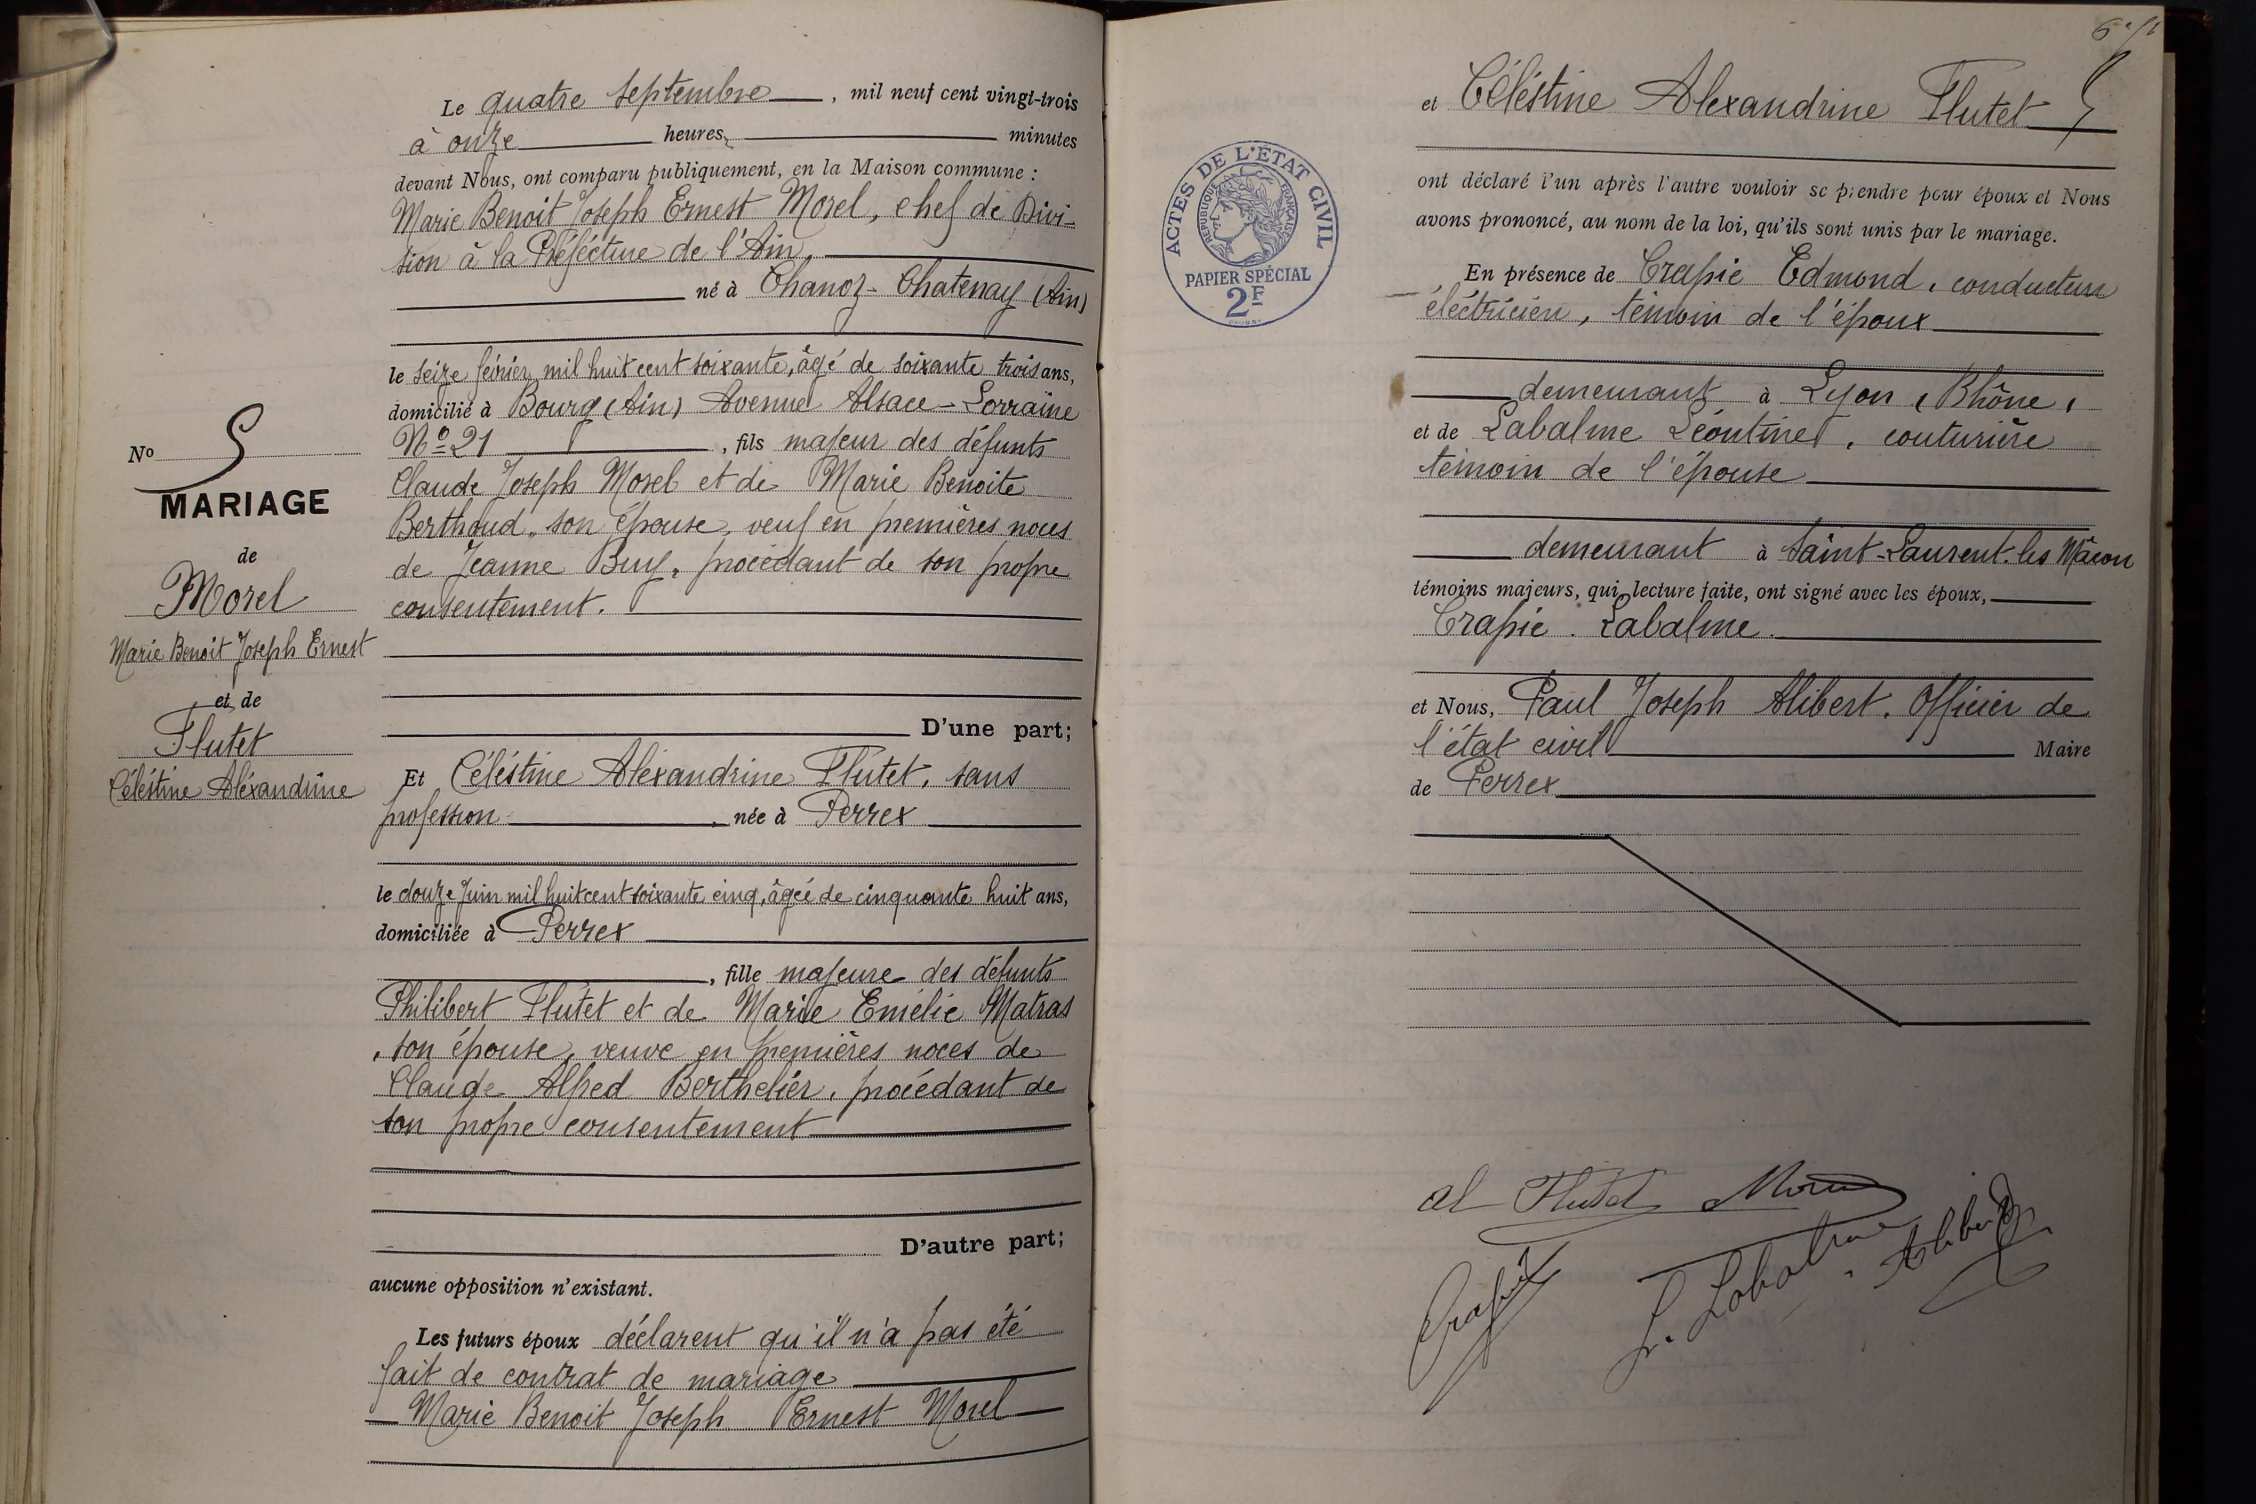 Le quatre Septembre, mil neuf cent vingt-trois
à onze heures, minutes
devant Nous, ont comparu publiquement, en la Maison commune :
Marie Benoit Joseph Ernest Morel, chef de Divi-
sion à la Préfécture de l'Ain,
né à Chanoz-Chatenay (Ain)
le seize février mil huit cent soixante, âgé de soixante trois ans,
domicilié à Bourg (Ain) Avenue Alsace-Lorraine
No 21, fils majeur des défunts
Claude Joseph Morel et de Marie Benoite
Berthoud, son épouse, veuf en premières noces
de Jeanne Buy, procédant de son propre
consentement.
D'une part;
Et Céléstine Aléxandrine Flutet, sans
profession, née à Perrex
le douze Juin mil huit cent soixante cinq, âgée de cinquante huit ans,
domiciliée à Perrex
, fille majeure des défunts
Philibert Flutet et de Marie Emélie Matras
, son épouse, veuve en premières noces de
Claude Alfred Berthelier, procédant de
son propre consentement
D'autre part;
aucune opposition n'existant.
Les futurs époux déclarent qu'il n'a pas été
fait de contrat de mariage
Marie Benoit Joseph Ernest Morel
No 5
MARIAGE
de
Morel
Marie Benoit Joseph Ernest
et de
Flutet
Céléstine Aléxandrine
et Céléstine Alexandrine Flutet
ont déclaré l'un après l'autre vouloir se prendre pour époux et Nous
avons prononcé, au nom de la loi, qu'ils sont unis par le mariage.
En présence de Crapie Edmond, conducteur
éléctricien, témoin de l'époux
demeurant à Lyon (Rhône)
et de Labalme Léontine, couturière
témoin de l'épouse
demeurant à Saint-Laurent-les Mâcon
témoins majeurs, qui, lecture faite, ont signé avec les époux,
Crapie. Labalme.
et Nous, Paul Joseph Alibert. Officier de
l'état civil Maire
de Perrex
ACTES DE L'ÉTAT CIVIL
RÉPUBLIQUE FRANÇAISE
PAPIER SPÉCIAL
2F
al Flutet Morel
Crapie L. Labalme Alibert